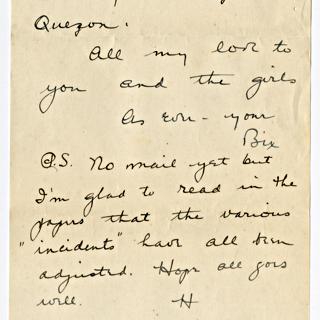 Quezon.
All my love to
you and the girls
As ever - your
Bix
P.S. No mail yet but
I'm glad to read in the
papers that the various
"incidents" have all been
adjusted. Hope all goes
well. H